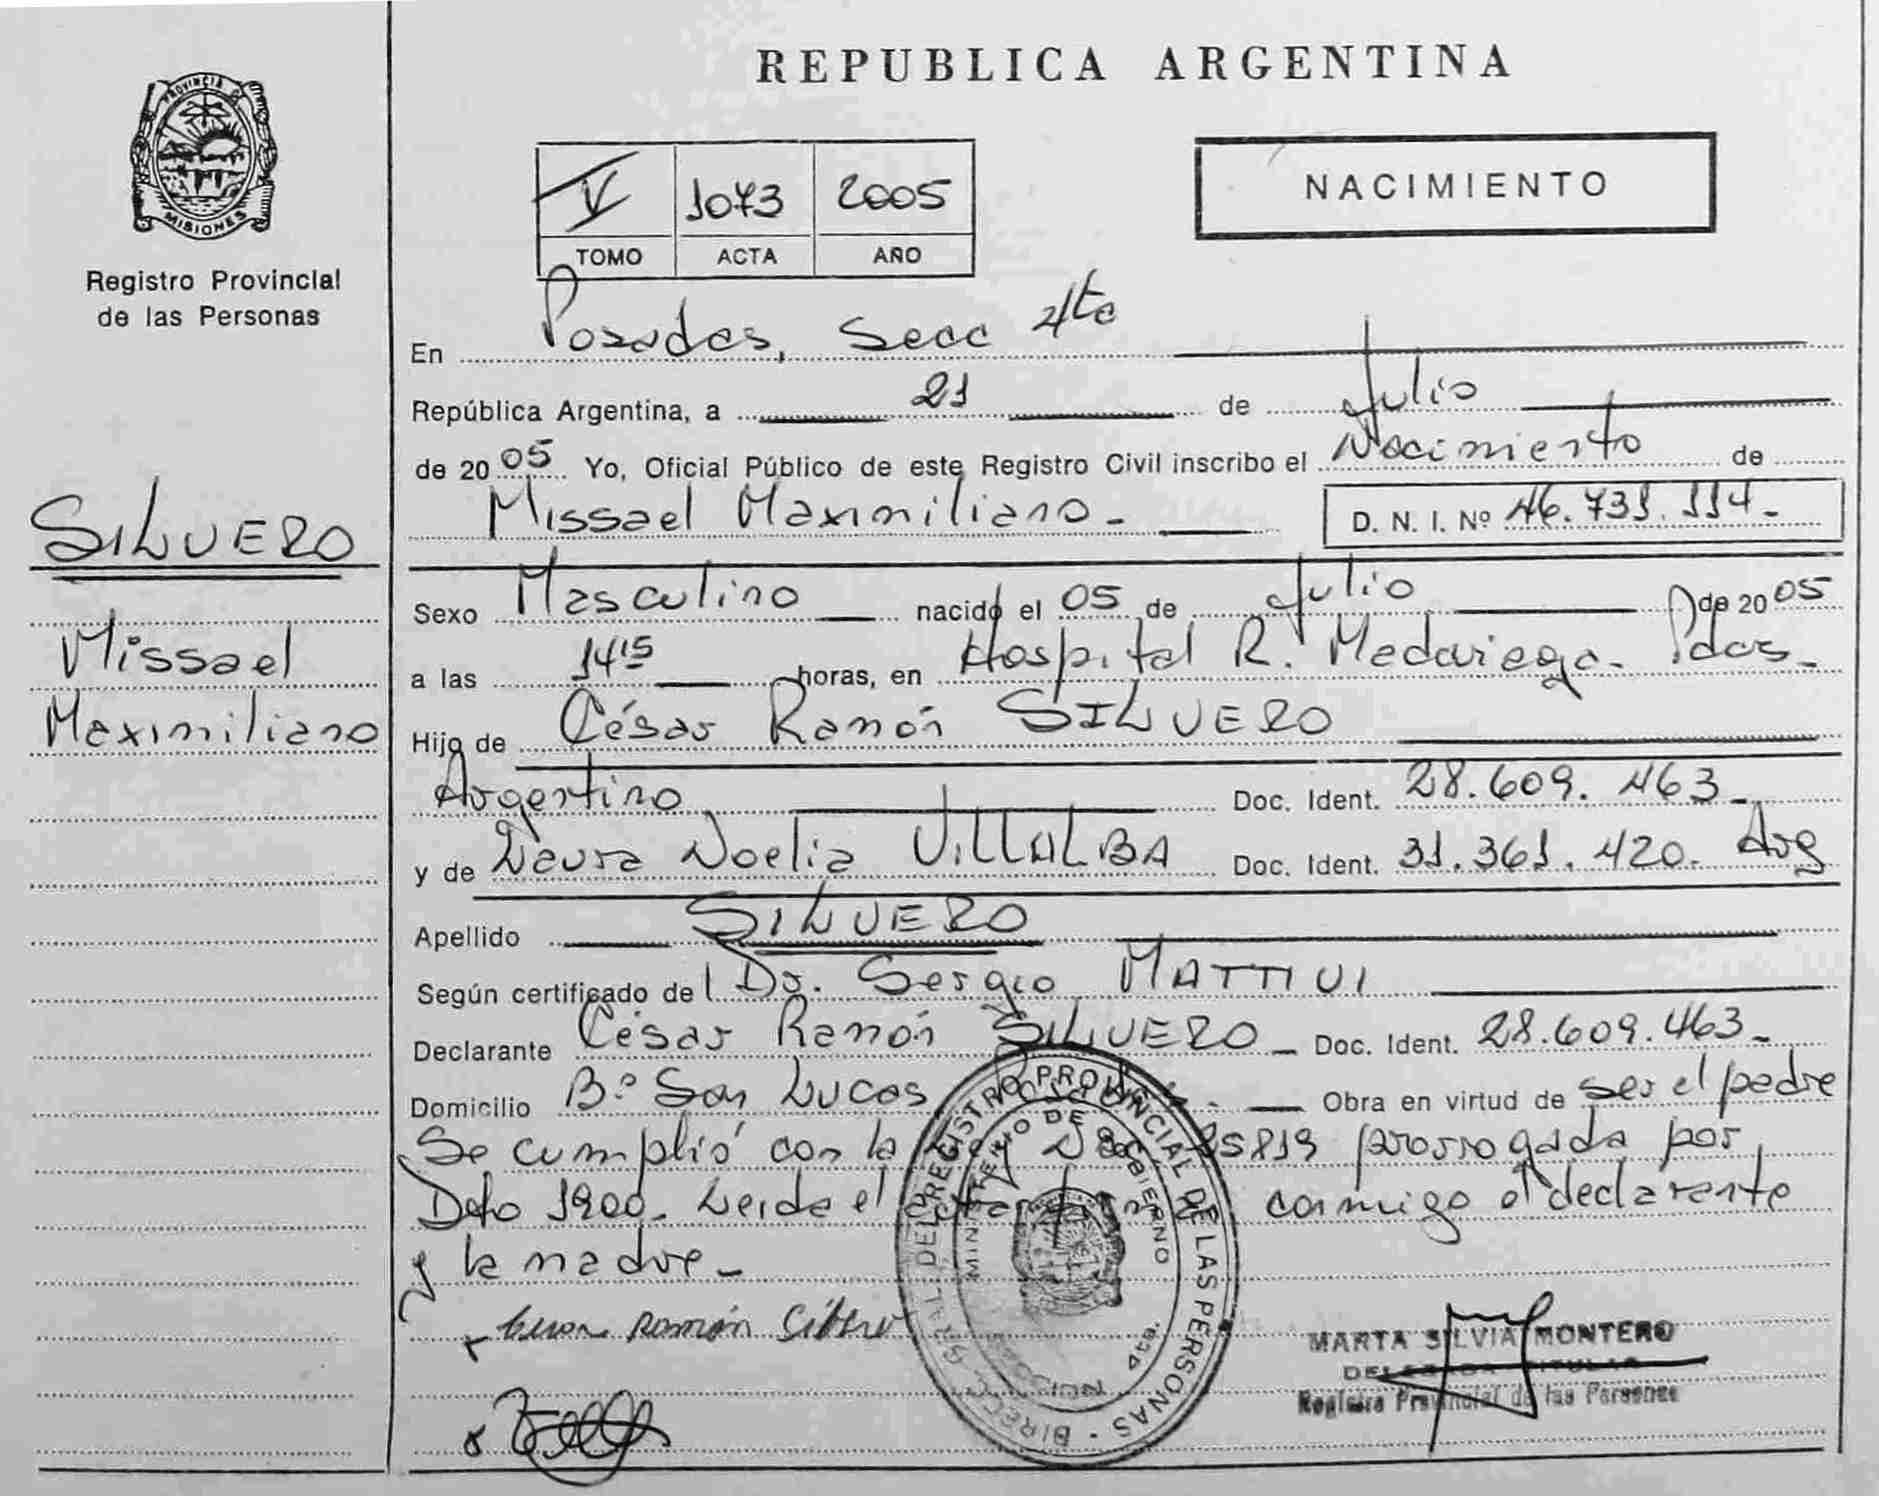 REPUBLICA ARGENTINA
PROVINCIA D MISIONES
Registro Provincial
de las Personas
V 1073 2005
TOMO ACTA AÑO
NACIMIENTO
En Posadas, Secc 4ta
República Argentina, a 21 de Julio
de 2005 Yo, Oficial Público de este Registro Civil inscribo el Nacimiento de
Missael Maximiliano - D. N. I. Nº 46.731.114.-
SILVERO
Missael
Maximiliano
Sexo Masculino nacido el 05 de Julio de 2005
a las 14 15 horas, en Hospital R. Madariaga - Pdas.-
Hijo de César Ramón SILVERO
Argentino Doc. Ident. 28.609.463-
y de Laura Noelia VILLALBA Doc. Ident. 31.361.420. Arg
Apellido SILVERO
Según certificado del Dr. Sergio MATTIVI
Declarante César Ramón SILVERO - Doc. Ident. 28.609.463-
Domicilio Bº San Lucas Obra en virtud de ser el padre
Se cumplió con la Ley Nac. 25819 prorrogada por
Dcto 1900. Leida el acta conmigo el declarante
y la madre -
Ramón
DIRECC. GRAL. DEL REGISTRO PROVINCIAL DE LAS PERSONAS
MINISTERIO DE GOBIERNO
MARTA SILVIA MONTERO
DELEGADA TITULAR
Registro Provincial de las Personas